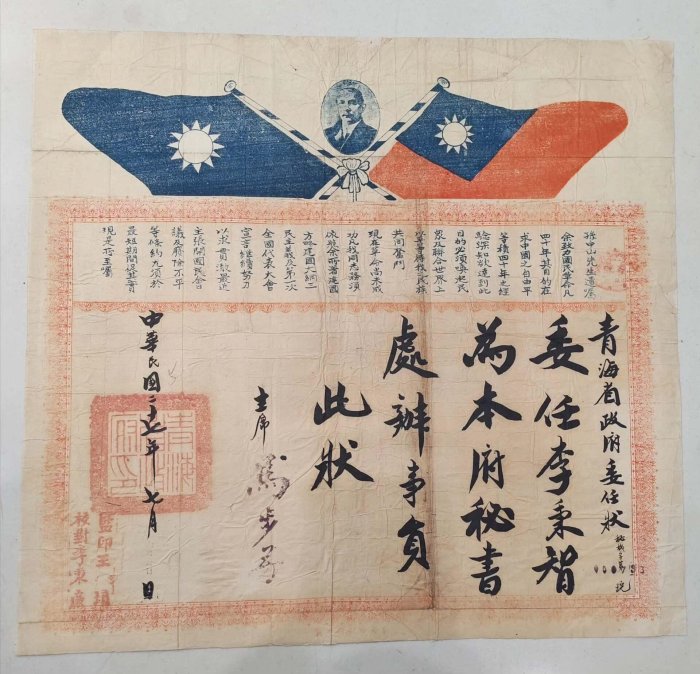 孫中山先生遺囑
余致力國民革命凡
四十年其目的在
求中國之自由平
等積四十年之經
驗深知欲達到此
目的必須喚起民
眾及聯合世界上
以平等待我之民族
共同奮鬥
現在革命尚未成
功凡我同志務須
依照余所著建國
方略建國大綱三
民主義及第一次
全國代表大會
宣言繼續努力
以求貫澈最近
主張開國民會
議及廢除不平
等條約尤須於
最短期間促其實
現是所至囑
青海省政府委任狀
號
委任李秉智
為本府秘書
處辦事員
此狀
主席 馬步芳
中華民國二十七年七月 日
青海省政府印
監印王
校對李東